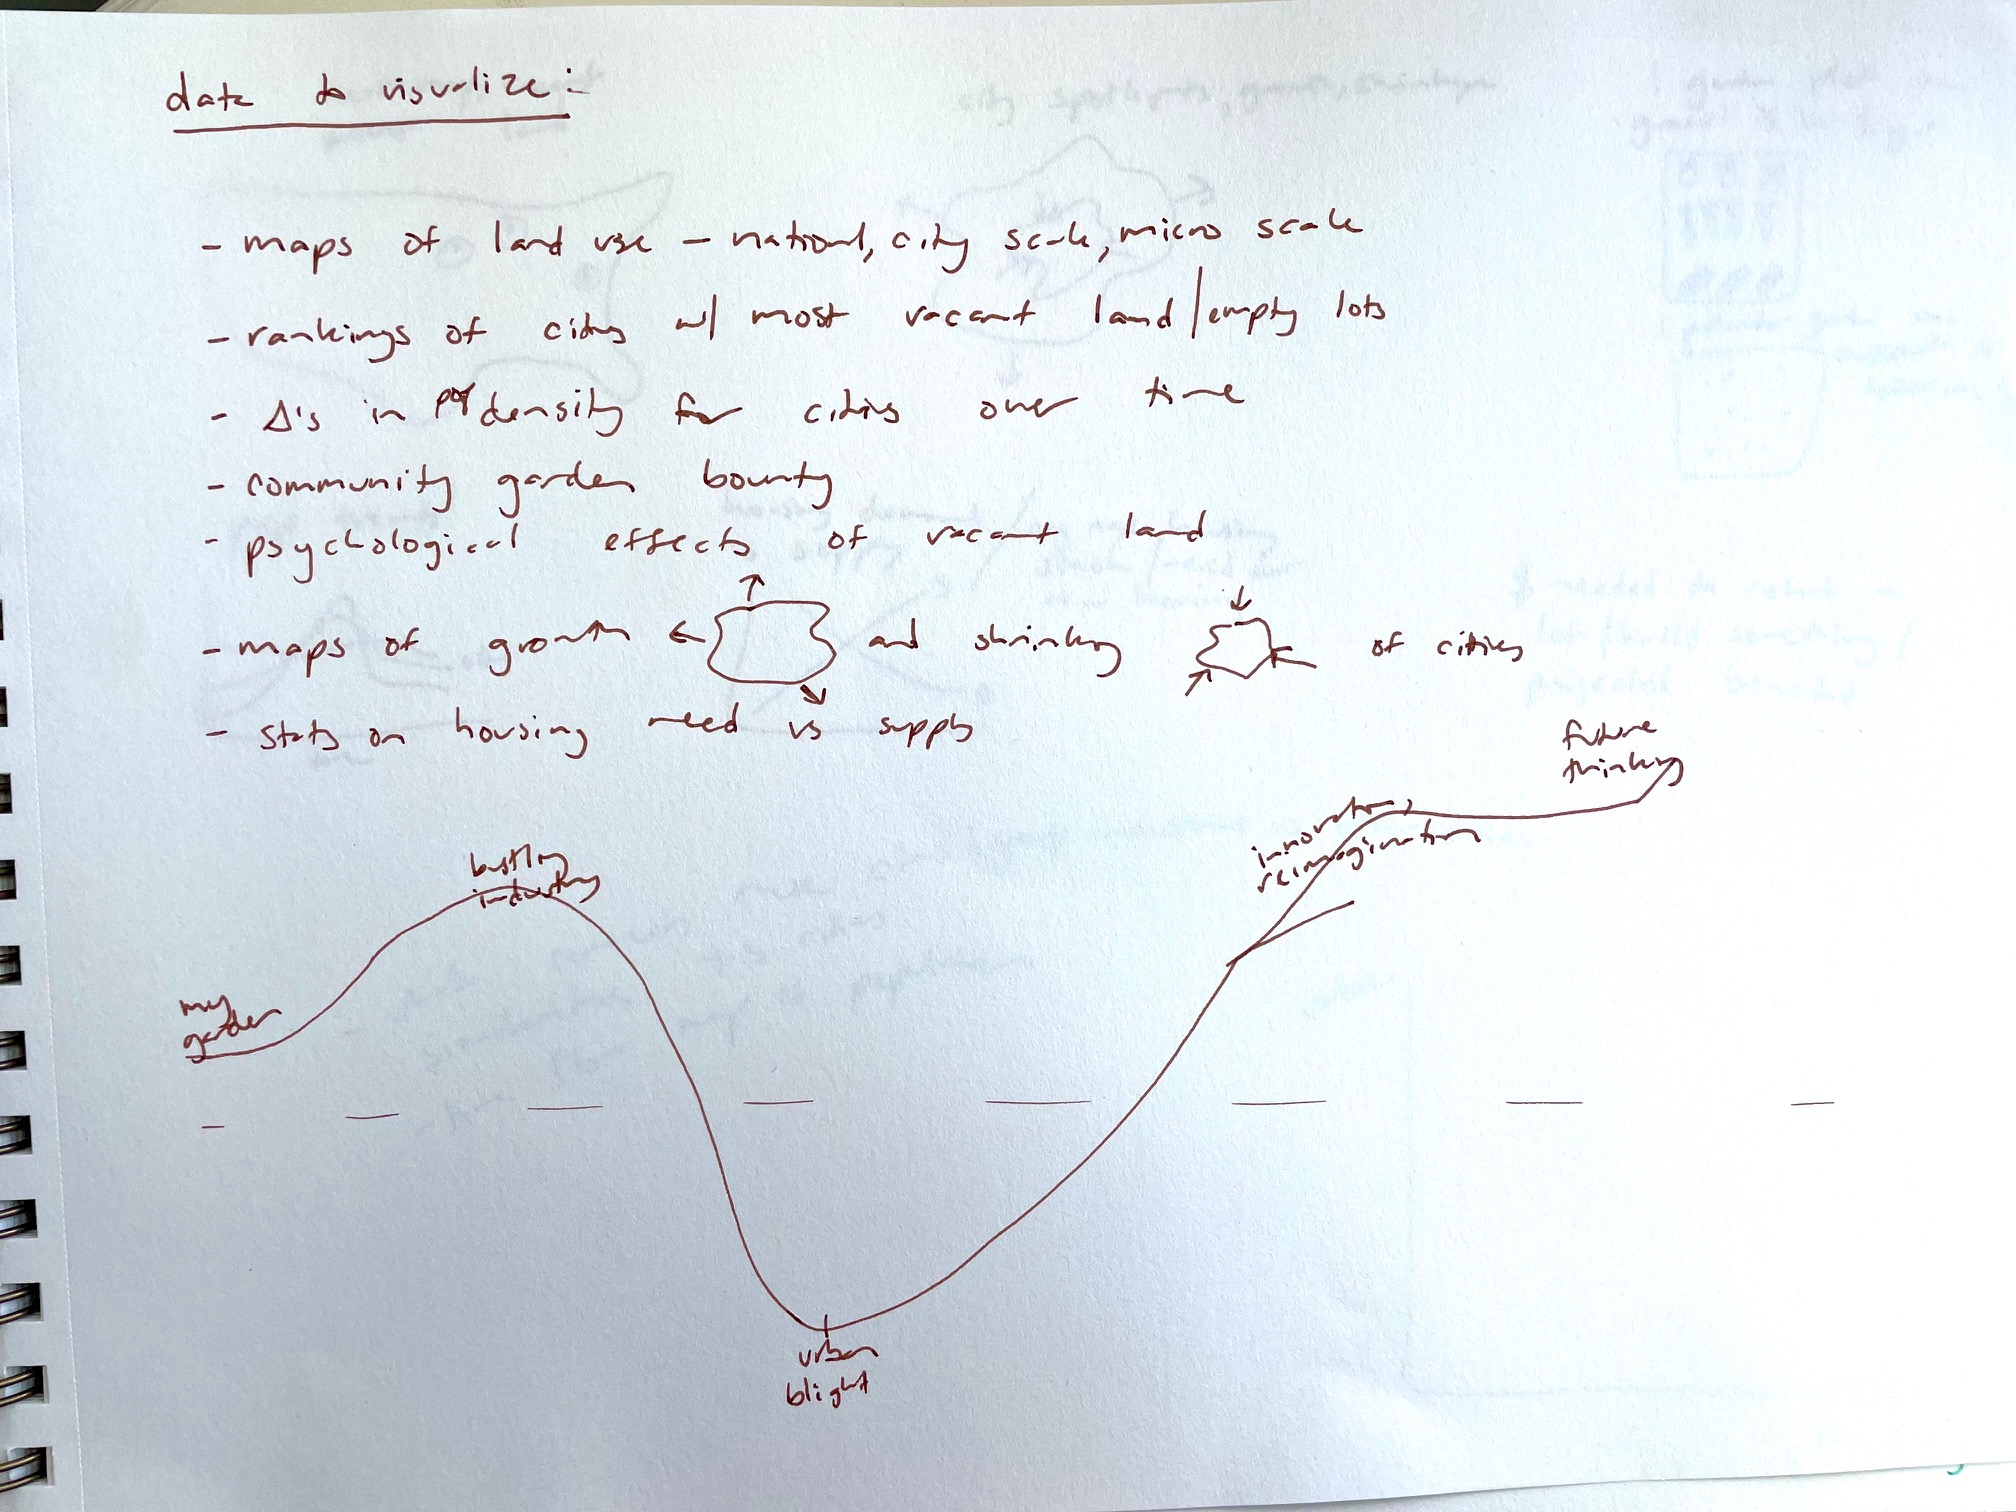 data to visualize:
- maps of land use - national, city scale, micro scale
- rankings of cities w/ most vacant land/empty lots
- Δ's in pop density for cities over time
- community garden bounty
- psychological effects of vacant land
- maps of growth and shrinking of cities
- stats on housing need vs supply
future
thinking
innovation,
reimagination
bustling
industry
my
garden
urban
blight